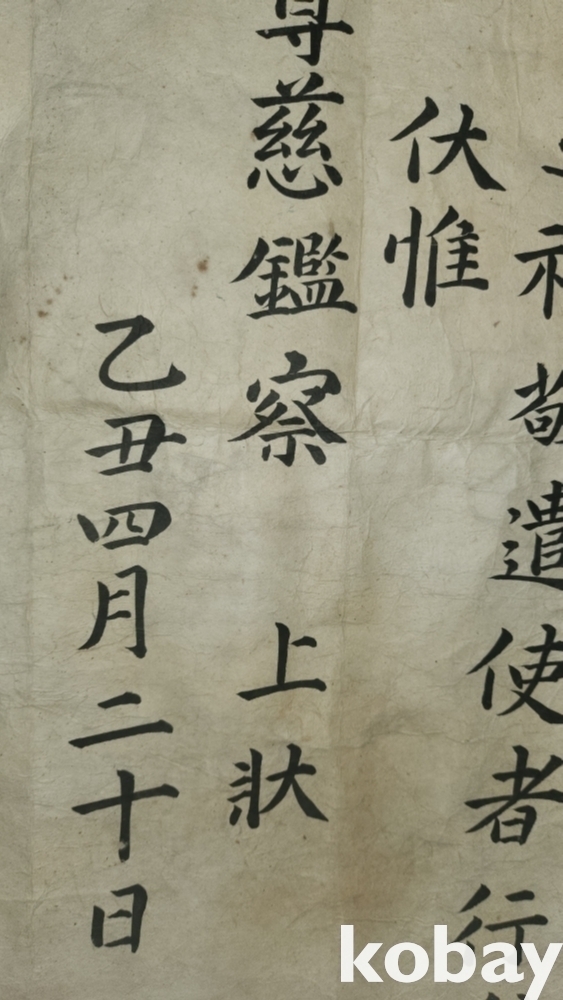 礼敬遣使者行
伏惟
尊慈鑑察 上狀
乙丑四月二十日
kobay